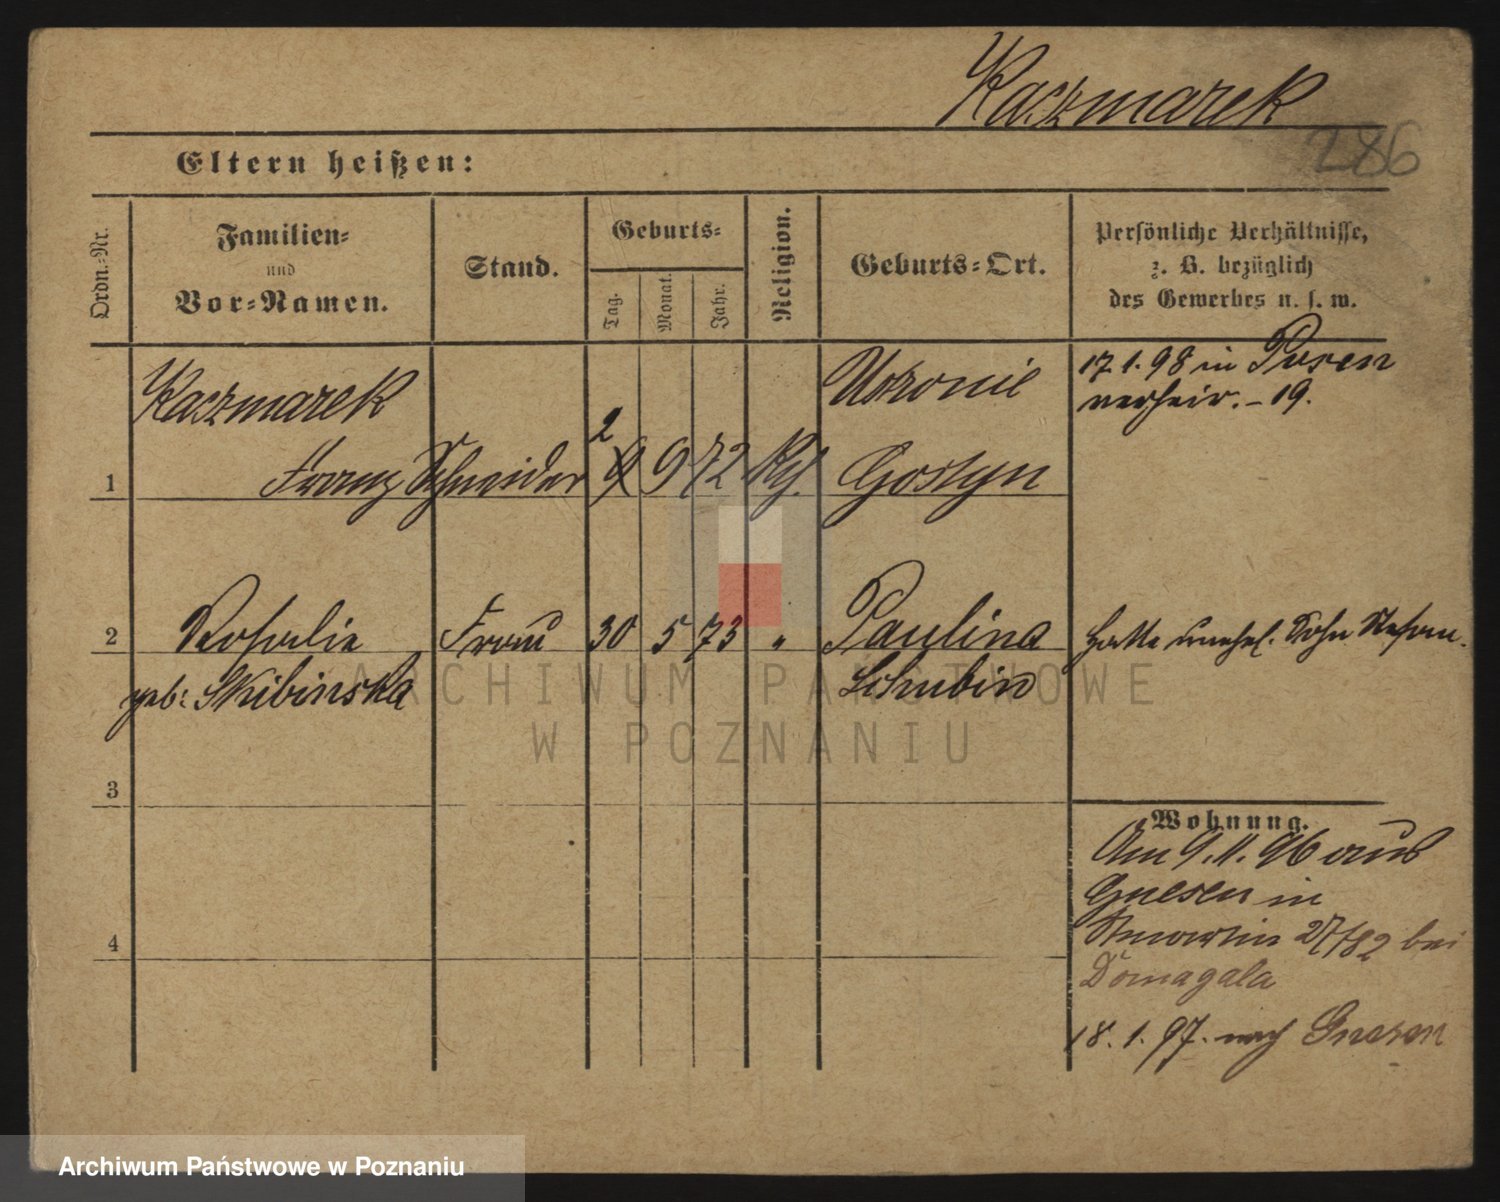 Kaczmarek
286
Eltern heißen:
Ordn.=Nr.
Familien=
und
Vor=Namen.
Stand.
Geburts=
Tag.
Monat.
Jahr.
Religion.
Geburts=Ort.
Persönliche Verhältnisse,
z. B. bezüglich
des Gewerbes u. s. w.
Kaczmarek
17.1.98 in Posen
verheir. - 19.
1 Franz Schneider 2 9 9 72 Kth. Gostyn
2 Rosalie Frau 30 5 73 " Paulina Hatte unehel. Sohn Stefan.
geb: Skibinska Schubin
ARCHIWUM PAŃSTWOWE
W POZNANIU
3
Wohnung.
Am 9.11.96 aus
Gnesen in
27/82 bei
4
Domagala
18.1.97. nach Gnesen
Archiwum Państwowe w Poznaniu